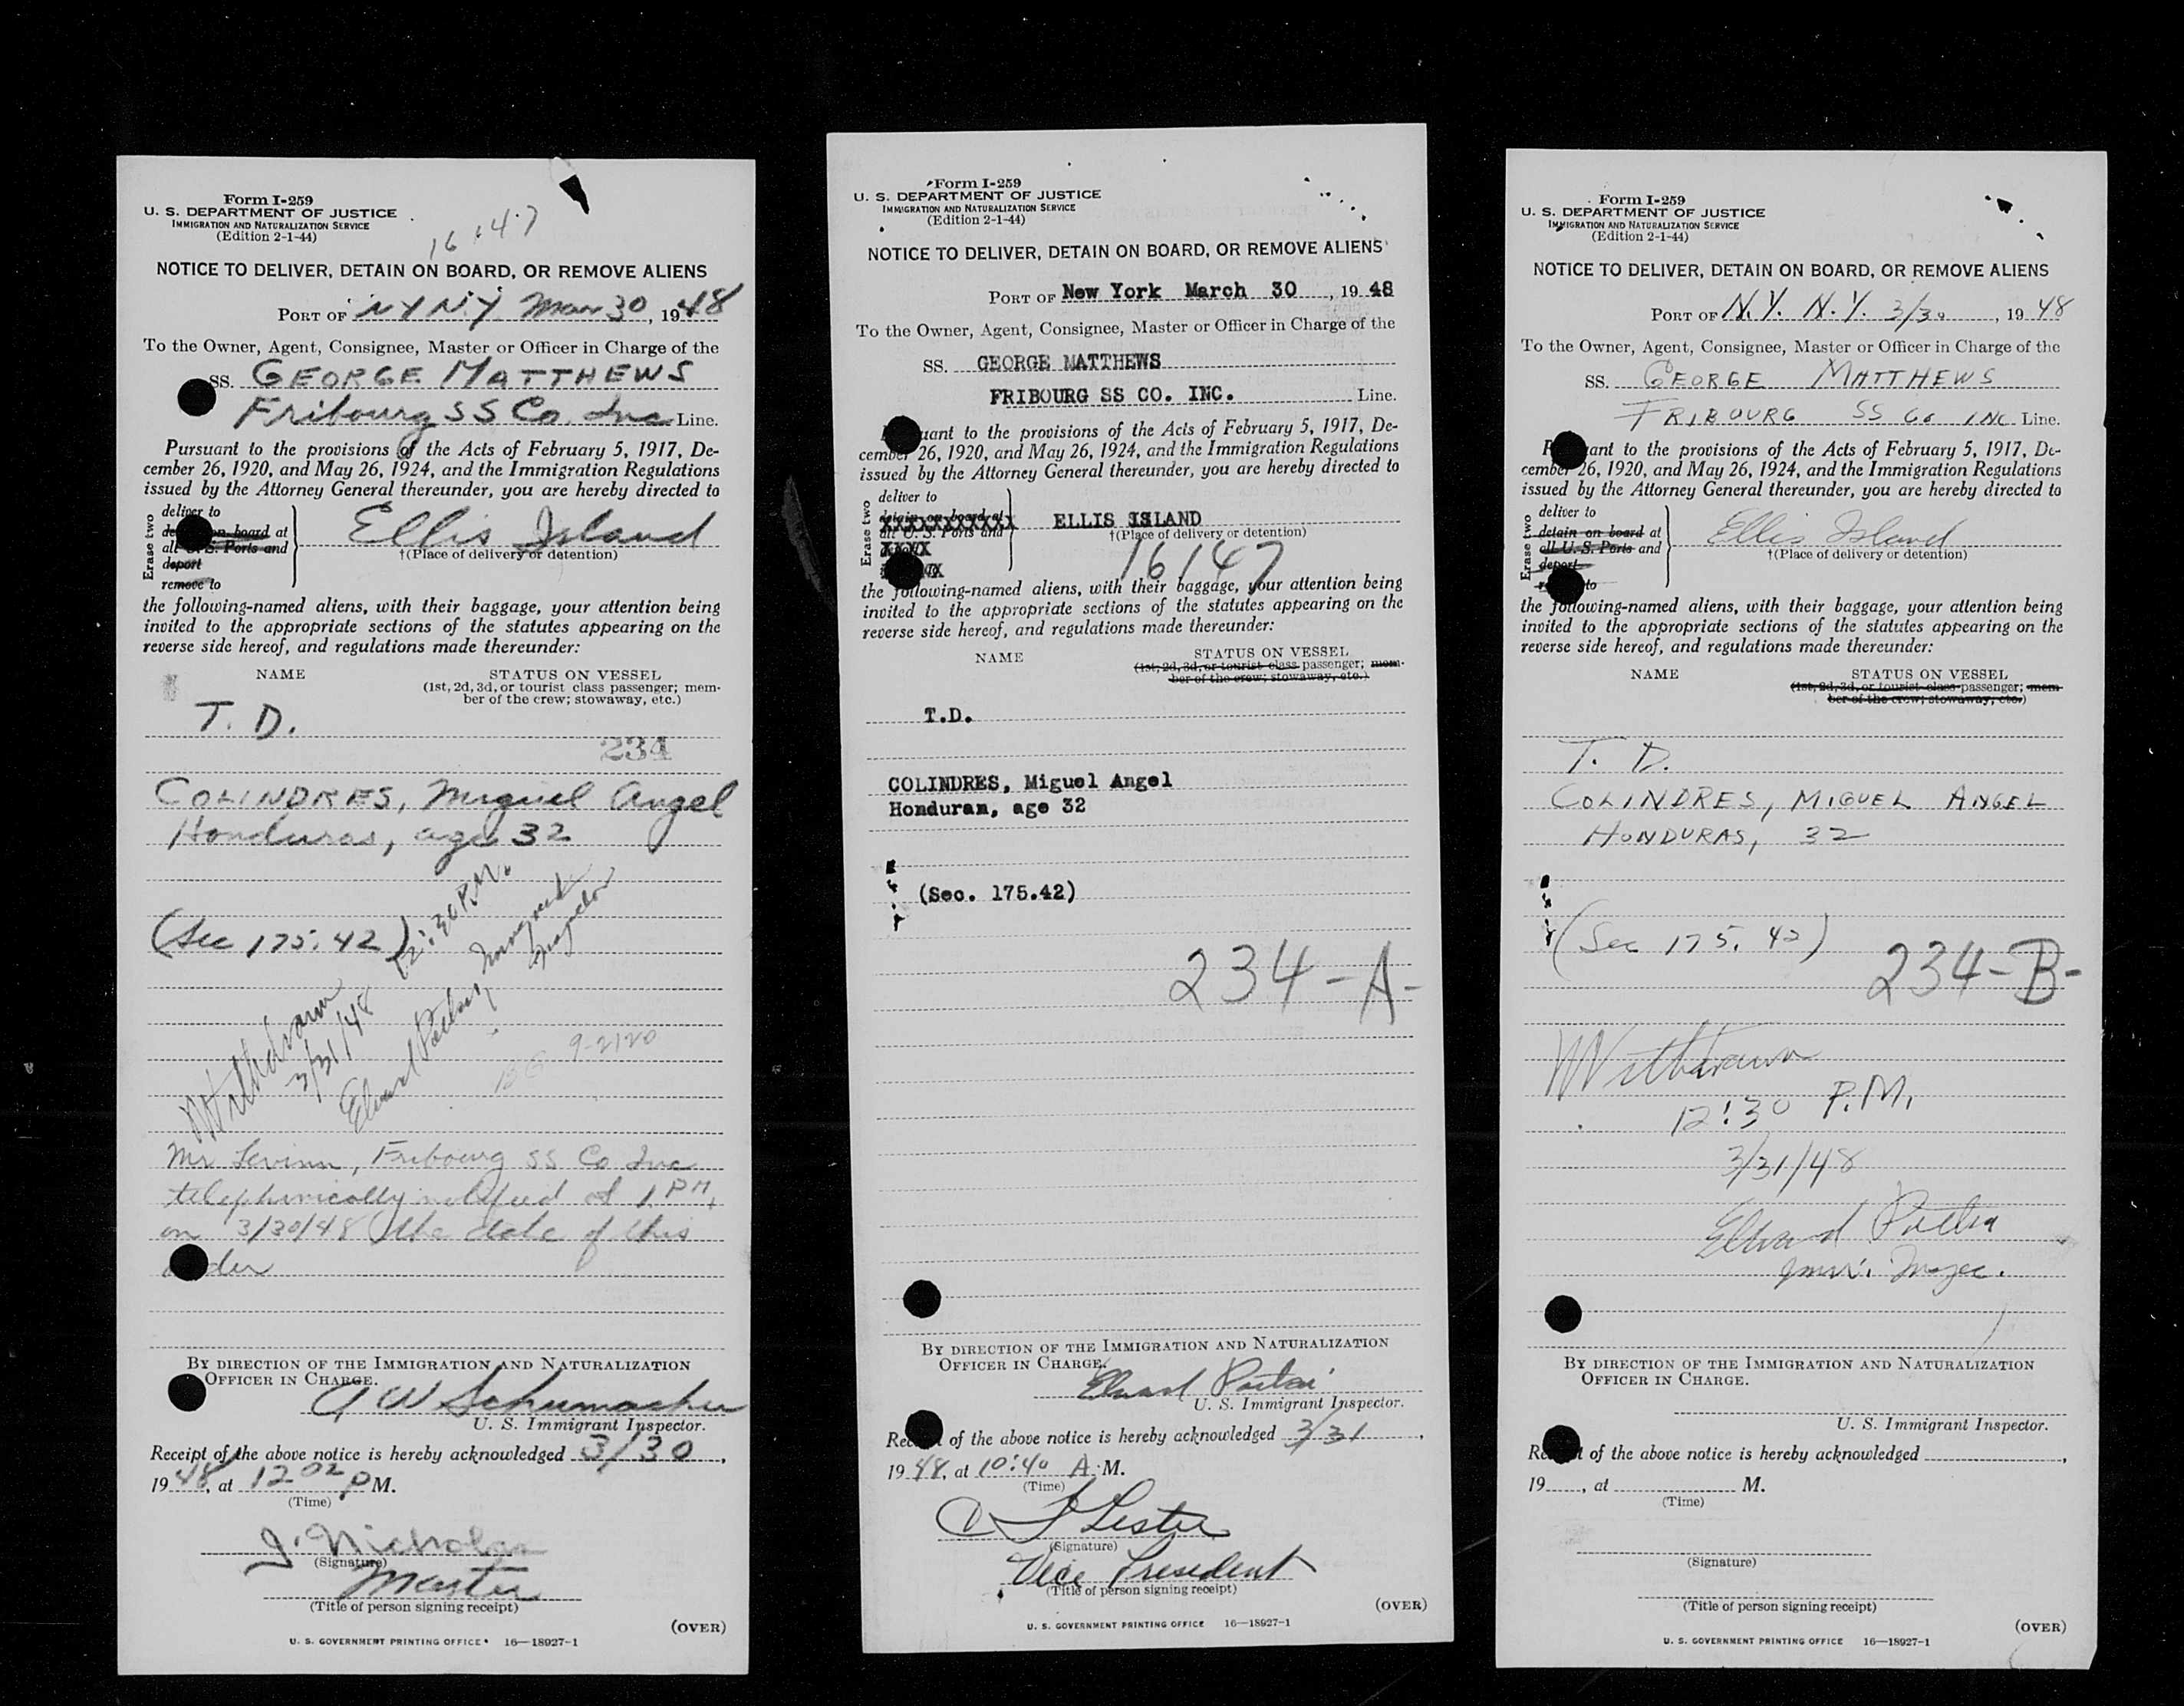 Form I-259
U. S. DEPARTMENT OF JUSTICE
IMMIGRATION AND NATURALIZATION SERVICE
(Edition 2-1-44)
16147
NOTICE TO DELIVER, DETAIN ON BOARD, OR REMOVE ALIENS
PORT OF NY N.Y. Mar 30, 1948
To the Owner, Agent, Consignee, Master or Officer in Charge of the
SS. GEORGE MATTHEWS
Fribourg SS Co. Inc Line.
Pursuant to the provisions of the Acts of February 5, 1917, De-
cember 26, 1920, and May 26, 1924, and the Immigration Regulations
issued by the Attorney General thereunder, you are hereby directed to
Erase two
deliver to
on board at
all U. S. Ports and
deport
remove to
Ellis Island
†(Place of delivery or detention)
the following-named aliens, with their baggage, your attention being
invited to the appropriate sections of the statutes appearing on the
reverse side hereof, and regulations made thereunder:
NAME STATUS ON VESSEL
(1st, 2d, 3d, or tourist class passenger; mem-
ber of the crew; stowaway, etc.)
T. D.
234
COLINDRES, Miguel Angel
Honduras, age 32
(Sec 175.42)
Withdrawn
3/31/48 12:30 P.M.
Immigrant
Inspector
9-2120
Mr Fribourg SS Co Inc
telephonically notified at 1 PM,
on 3/30/48 the date of this
BY DIRECTION OF THE IMMIGRATION AND NATURALIZATION
OFFICER IN CHARGE.
A W Schumacher
U. S. Immigrant Inspector.
Receipt of the above notice is hereby acknowledged 3/30,
1948, at 12 02 P M.
(Time)
J. Nicholas
(Signature)
Master
(Title of person signing receipt)
(OVER)
U. S. GOVERNMENT PRINTING OFFICE 16—18927-1
Form I-259
U. S. DEPARTMENT OF JUSTICE
IMMIGRATION AND NATURALIZATION SERVICE
(Edition 2-1-44)
NOTICE TO DELIVER, DETAIN ON BOARD, OR REMOVE ALIENS
PORT OF New York March 30, 1948
To the Owner, Agent, Consignee, Master or Officer in Charge of the
SS. GEORGE MATTHEWS
FRIBOURG SS CO. INC. Line.
uant to the provisions of the Acts of February 5, 1917, De-
cember 26, 1920, and May 26, 1924, and the Immigration Regulations
issued by the Attorney General thereunder, you are hereby directed to
Erase two
deliver to
detain on board at
all U. S. Ports and
ELLIS ISLAND
†(Place of delivery or detention)
16147
the following-named aliens, with their baggage, your attention being
invited to the appropriate sections of the statutes appearing on the
reverse side hereof, and regulations made thereunder:
NAME STATUS ON VESSEL
(1st, 2d, 3d, or tourist class passenger; mem-
ber of the crew; stowaway, etc.)
T.D.
COLINDRES, Miguel Angel
Honduran, age 32
(Sec. 175.42)
234-A-
BY DIRECTION OF THE IMMIGRATION AND NATURALIZATION
OFFICER IN CHARGE.
U. S. Immigrant Inspector.
of the above notice is hereby acknowledged 3/31,
1948, at 10:40 A. M.
(Time)
Lester
(Signature)
Vice President
(Title of person signing receipt)
(OVER)
U. S. GOVERNMENT PRINTING OFFICE 16—18927-1
Form I-259
U. S. DEPARTMENT OF JUSTICE
IMMIGRATION AND NATURALIZATION SERVICE
(Edition 2-1-44)
NOTICE TO DELIVER, DETAIN ON BOARD, OR REMOVE ALIENS
PORT OF N.Y. N.Y. 3/30, 1948
To the Owner, Agent, Consignee, Master or Officer in Charge of the
SS. GEORGE MATTHEWS
FRIBOURG SS Co INC Line.
ant to the provisions of the Acts of February 5, 1917, De-
cember 26, 1920, and May 26, 1924, and the Immigration Regulations
issued by the Attorney General thereunder, you are hereby directed to
Erase two
deliver to
detain on board at
all U. S. Ports and
deport
to
Ellis Island
†(Place of delivery or detention)
the following-named aliens, with their baggage, your attention being
invited to the appropriate sections of the statutes appearing on the
reverse side hereof, and regulations made thereunder:
NAME STATUS ON VESSEL
(1st, 2d, 3d, or tourist class passenger; mem-
ber of the crew; stowaway, etc.)
T. D.
COLINDRES, MIGUEL ANGEL
HONDURAS, 32
(Sec 175.42)
234-B-
Withdrawn
12:30 P.M.
3/31/48
BY DIRECTION OF THE IMMIGRATION AND NATURALIZATION
OFFICER IN CHARGE.
U. S. Immigrant Inspector.
of the above notice is hereby acknowledged
19 , at M.
(Time)
(Signature)
(Title of person signing receipt)
(OVER)
U. S. GOVERNMENT PRINTING OFFICE 16—18927-1